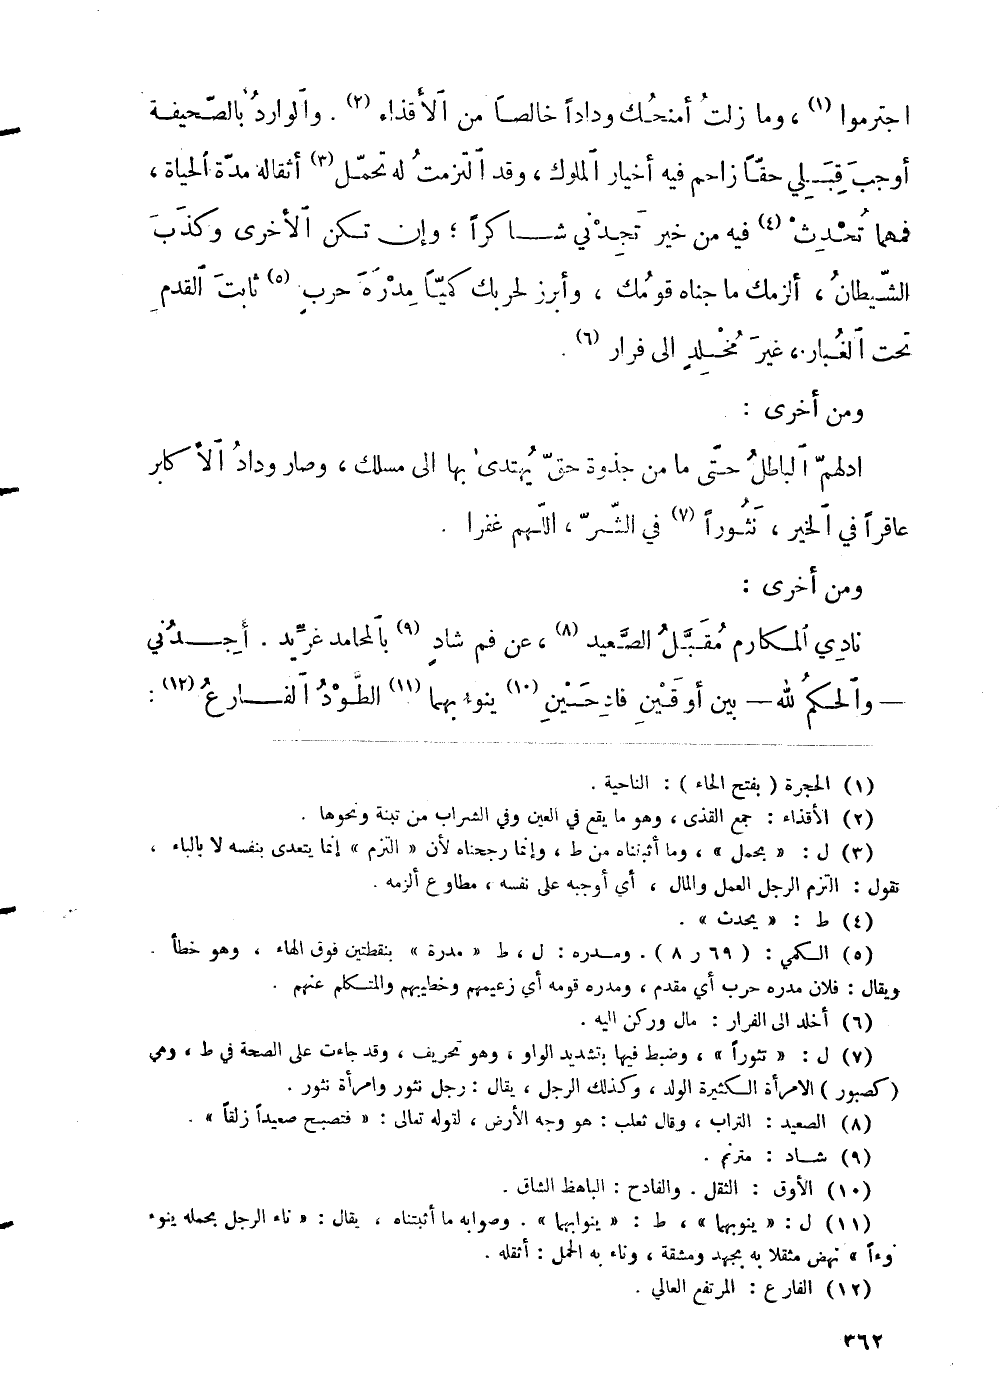 اجترموا (١) ، وما زلتُ أمنحُك وداداً خالصاً من ٱلأقذاء (٢) . وٱلواردُ بالصّحيفة
أوجبَ قِبَلي حقّاً زاحم فيه أخيار ٱلملوك ، وقد ٱلتزمتُ له تحمّل (٣) أثقاله مدّة ٱلحياة ،
فمهما تُحْدِثْ (٤) فيه من خير تجِدْني شاكراً ؛ وإن تكن ٱلأخرى وكذَبَ
الشّيطانُ ، ألزمك ما جناه قومُك ، وأبرز لحربك كميّاً مِدْرَهَ حربٍ (٥) ثابتَ ٱلقدمِ
تحت ٱلغُبار ، غيرَ مُخْلِدٍ الى فرار (٦) .
ومن أخرى :
ادلهمّ ٱلباطلُ حتّى ما من جذوة حقّ يُهتدىٰ بها الى مسلك ، وصار ودادُ ٱلأكابر
عاقراً في ٱلخير ، نَثُوراً (٧) في الشّرّ ، اللّهم غفرا .
ومن أخرى :
نادي ٱلمكارم مُقَبَّلُ الصَّعيد (٨) ، عن فم شادٍ (٩) بٱلمحامد غرّيد . أجِدُني
— وٱلحكمُ لله — بين أوقَيْنِ فادِحَيْنِ (١٠) ينوء بهما (١١) الطَّوْدُ ٱلفارعُ (١٢) :
(١) الحجرة ( بفتح الحاء ) : الناحية .
(٢) الأقذاء : جمع القذى ، وهو ما يقع في العين وفي الشراب من تبنة ونحوها .
(٣) ل : « بحمل » ، وما أثبتناه من ط ، وإنما رجحناه لأن « التزم » إنما يتعدى بنفسه لا بالباء ،
تقول : التزم الرجل العمل والمال ، أي أوجبه على نفسه ، مطاوع ألزمه .
(٤) ط : « يحدث » .
(٥) الكمي : ( ٦٩ ر ٨ ) . ومدره : ل ، ط « مدرة » بنقطتين فوق الهاء ، وهو خطأ .
ويقال : فلان مدره حرب أي مقدم ، ومدره قومه أي زعيمهم وخطيبهم والمتكلم عنهم .
(٦) أخلد الى الفرار : مال وركن اليه .
(٧) ل : « تثوراً » ، وضبط فيها بتشديد الواو ، وهو تحريف ، وقد جاءت على الصحة في ط ، وهي
( كصبور ) الامرأة الكثيرة الولد ، وكذلك الرجل ، يقال : رجل نثور وامرأة نثور .
(٨) الصعيد : التراب ، وقال ثعلب : هو وجه الأرض ، لقوله تعالى : « فتصبح صعيداً زلقاً » .
(٩) شاد : مترنم .
(١٠) الأوق : الثقل . والفادح : الباهظ الشاق .
(١١) ل : « ينوبهما » ، ط : « ينوابهما » . وصوابه ما أثبتناه ، يقال : « ناء الرجل بحمله ينوء
نوءاً » نهض مثقلا به بجهد ومشقة ، وناء به الحمل : أثقله .
(١٢) الفارع : المرتفع العالي .
٣٦٢